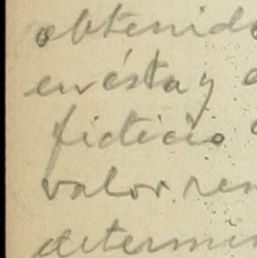 obtenido
en ésta y
ficticio
valor ren
determin